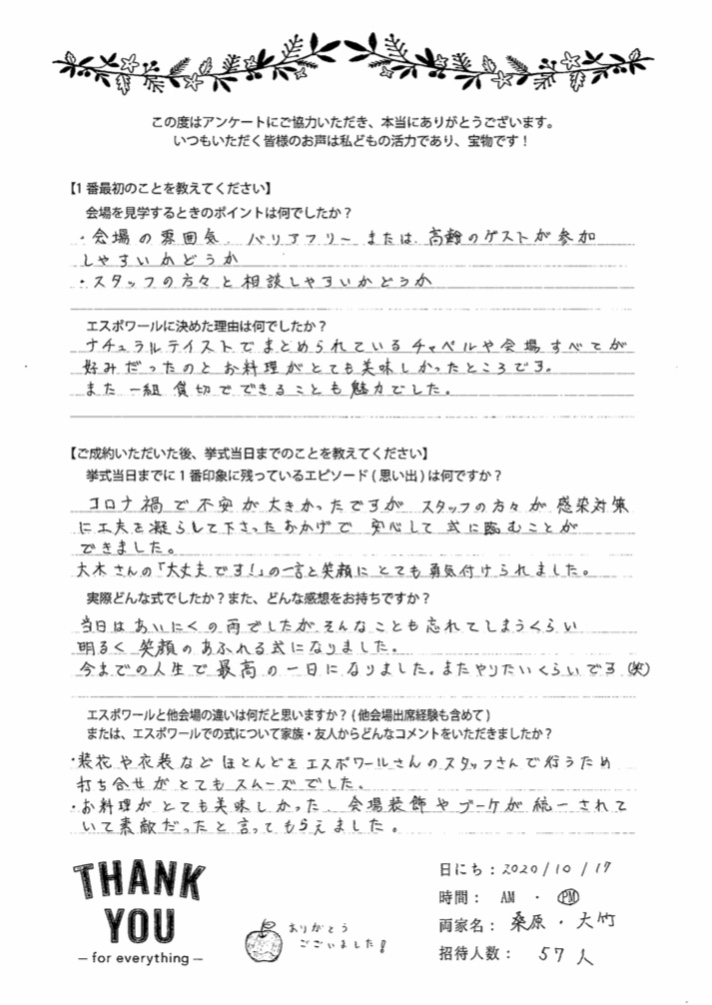 この度はアンケートにご協力いただき、本当にありがとうございます。
いつもいただく皆様のお声は私どもの活力であり、宝物です！
【1番最初のことを教えてください】
会場を見学するときのポイントは何でしたか？
・会場の雰囲気、バリアフリーまたは、高齢のゲストが参加
しやすいかどうか
・スタッフの方々と相談しやすいかどうか
エスポワールに決めた理由は何でしたか？
ナチュラルテイストでまとめられているチャペルや会場すべてが
好みだったのとお料理がとても美味しかったところです。
また一組貸切でできることも魅力でした。
【ご成約いただいた後、挙式当日までのことを教えてください】
挙式当日までに1番印象に残っているエピソード(思い出)は何ですか？
コロナ禍で不安が大きかったですが スタッフの方々が感染対策
に工夫を凝らして下さったおかげで 安心して式に臨むことが
できました。
大木さんの「大丈夫です!」の一言と笑顔にとても勇気付けられました。
実際どんな式でしたか？また、どんな感想をお持ちですか？
当日はあいにくの雨でしたが、そんなことも忘れてしまうくらい
明るく笑顔のあふれる式になりました。
今までの人生で最高の一日になりました。またやりたいくらいです(笑)
エスポワールと他会場の違いは何だと思いますか？(他会場出席経験も含めて)
または、エスポワールでの式について家族・友人からどんなコメントをいただきましたか？
・装花や衣装などほとんどをエスポワールさんのスタッフさんで行うため
打ち合せがとてもスムーズでした。
・お料理がとても美味しかった、会場装飾やブーケが統一されて
いて素敵だったと言ってもらえました。
THANK
YOU
— for everything —
ありがとう
ございました!
日にち：2020/10/17
時間： AM ・ PM
両家名：桑原・大竹
招待人数： 57人